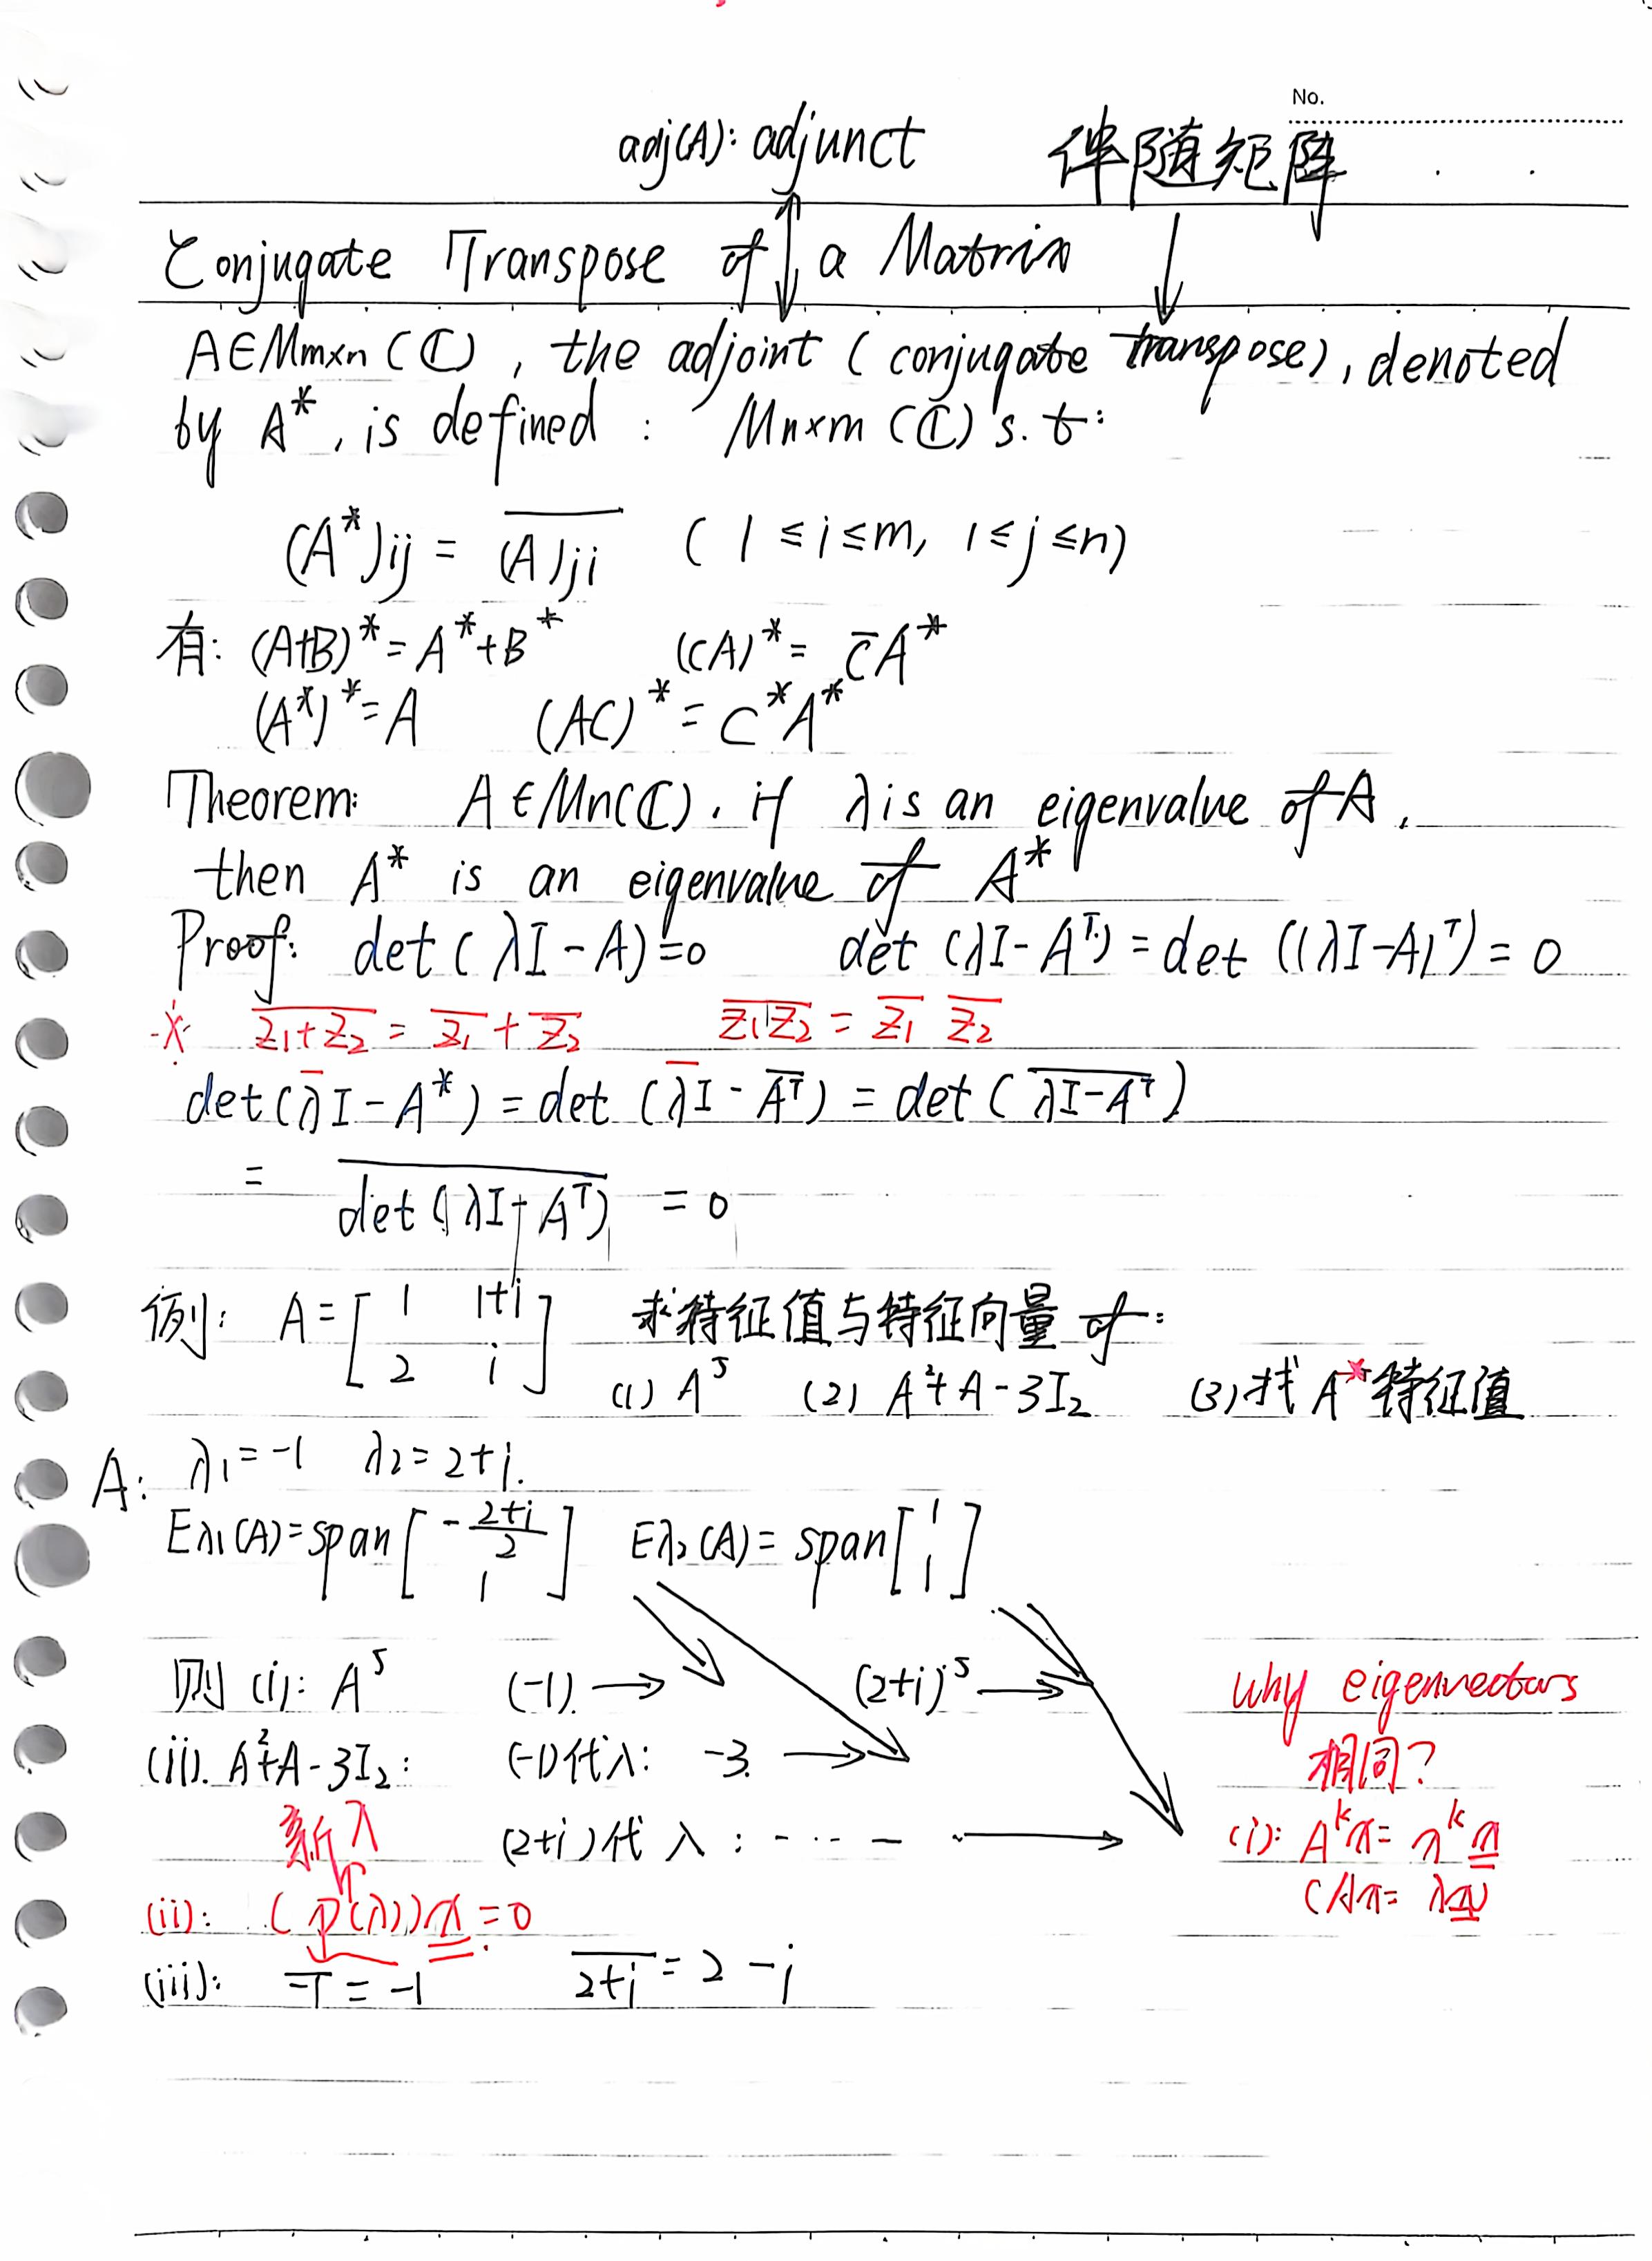 No.
adj(A): adjunct 伴随矩阵
Conjugate Transpose of a Matrix
A∈Mm×n (ℂ), the adjoint (conjugate transpose), denoted
by A*, is defined : Mn×m (ℂ) s.t:
(A*)ij = \overline{(A)ji} ( 1 ≤ i ≤ m, 1 ≤ j ≤ n)
有: (A+B)* = A* + B* (cA)* = \overline{c}A*
(A*)* = A (AC)* = C*A*
Theorem: A∈Mn(ℂ). if λ is an eigenvalue of A,
then A* is an eigenvalue of A*
Proof: det(λI - A) = 0 det (λI - Aᵀ) = det ((λI - A)ᵀ) = 0
※ \overline{z₁+z₂} = \overline{z₁} + \overline{z₂} \overline{z₁z₂} = \overline{z₁} \overline{z₂}
det(\overline{λ}I - A*) = det (\overline{λ}I - \overline{Aᵀ}) = det (\overline{λI - Aᵀ})
= \overline{det(λI - Aᵀ)} = 0
例: A = [1 1+i
2 i] 求特征值与特征向量 of:
(1) A⁵ (2) A²+A-3I₂ (3)找 A*特征值
A: λ₁ = -1 λ₂ = 2+i.
Eλ₁(A) = span[-\frac{2+i}{2}
1] Eλ₂(A) = span[1
1]
则 (i): A⁵ (-1) → (2+i)⁵ →
why eigenvectors
(ii). A²+A-3I₂: (-1)代入: -3. →
相同?
新λ (2+i)代入: - ·· - →
(i): Aᵏx = λᵏx
(Ax = λx)
(ii): (P(λ))x = 0
(iii): \overline{-1} = -1 \overline{2+i} = 2-i